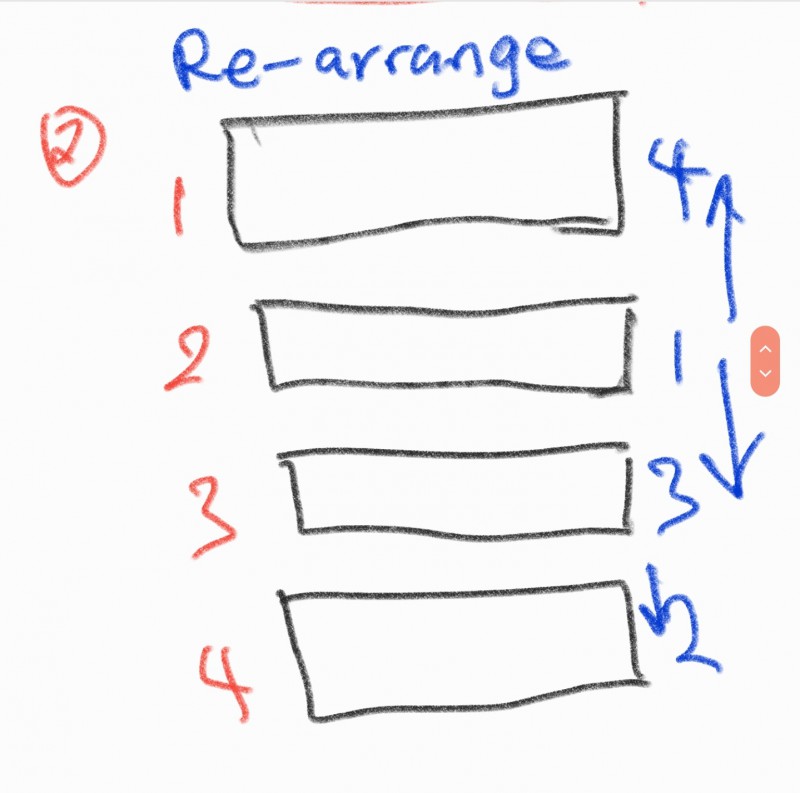 Re-arrange
2
1 4
2 1
3 3
4 2